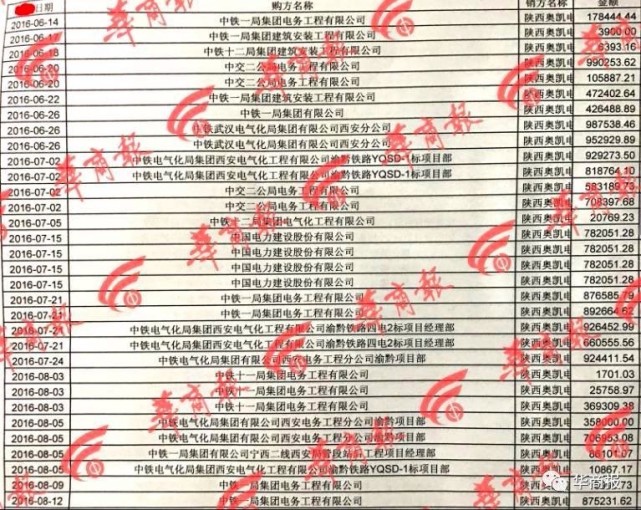 日期 购方名称 销方名称 金额
2016-06-14 中铁一局集团电务工程有限公司 陕西奥凯电 178444.44
2016-06-17 中铁一局集团建筑安装工程有限公司 陕西奥凯电 3900.00
2016-06-18 中铁十二局集团建筑安装工程有限公司 陕西奥凯电 8393.16
2016-06-20 中交二公局电务工程有限公司 陕西奥凯电 990253.62
2016-06-20 中交二公局电务工程有限公司 陕西奥凯电 105887.21
2016-06-22 中铁一局集团建筑安装工程有限公司 陕西奥凯电 472402.64
2016-06-26 中铁一局集团有限公司 陕西奥凯电 426488.89
2016-06-26 中铁武汉电气化局集团有限公司西安分公司 陕西奥凯电 987538.46
2016-06-26 中铁武汉电气化局集团有限公司西安分公司 陕西奥凯电 952929.89
2016-07-02 中铁电气化局集团西安电气化工程有限公司渝黔铁路YQSD-1标项目部 陕西奥凯电 929273.50
2016-07-02 中铁电气化局集团西安电气化工程有限公司渝黔铁路YQSD-1标项目部 陕西奥凯电 818764.10
2016-07-02 中交二公局电务工程有限公司 陕西奥凯电 583189.73
2016-07-02 中交二公局电务工程有限公司 陕西奥凯电 708397.68
2016-07-05 中铁十二局集团电气化工程有限公司 陕西奥凯电 20769.23
2016-07-15 中国电力建设股份有限公司 陕西奥凯电 782051.28
2016-07-15 中国电力建设股份有限公司 陕西奥凯电 782051.28
2016-07-15 中国电力建设股份有限公司 陕西奥凯电 782051.28
2016-07-15 中国电力建设股份有限公司 陕西奥凯电 782051.28
2016-07-21 中铁一局集团电务工程有限公司 陕西奥凯电 876585.79
2016-07-21 中铁一局集团电务工程有限公司 陕西奥凯电 892664.62
2016-07-21 中铁电气化局集团西安电气化工程有限公司渝黔铁路四电2标项目经理部 陕西奥凯电 926452.99
2016-07-21 中铁电气化局集团西安电气化工程有限公司渝黔铁路四电2标项目经理部 陕西奥凯电 660555.56
2016-07-24 中铁电气化局集团有限公司西安电务工程分公司渝黔项目部 陕西奥凯电 924411.54
2016-08-03 中铁十一局集团电务工程有限公司 陕西奥凯电 1701.03
2016-08-03 中铁十一局集团电务工程有限公司 陕西奥凯电 25758.97
2016-08-03 中铁十一局集团电务工程有限公司 陕西奥凯电 369309.38
2016-08-05 中铁电气化局集团有限公司西安电务工程分公司渝黔项目部 陕西奥凯电 358000.00
2016-08-05 中铁电气化局集团有限公司西安电务工程分公司渝黔项目部 陕西奥凯电 706953.08
2016-08-05 中铁一局集团宁西二线西安局管段站后工程项目经理部 陕西奥凯电 86101.07
2016-08-05 中铁电气化局集团西安电气化工程有限公司渝黔铁路YQSD-1标项目部 陕西奥凯电 10867.17
2016-08-09 中铁一局集团电务工程有限公司 陕西奥凯电
2016-08-12 中铁一局集团电务工程有限公司 陕西奥凯电 875231.62
華商報
華商報
華商報
華商報
華商報
华商报